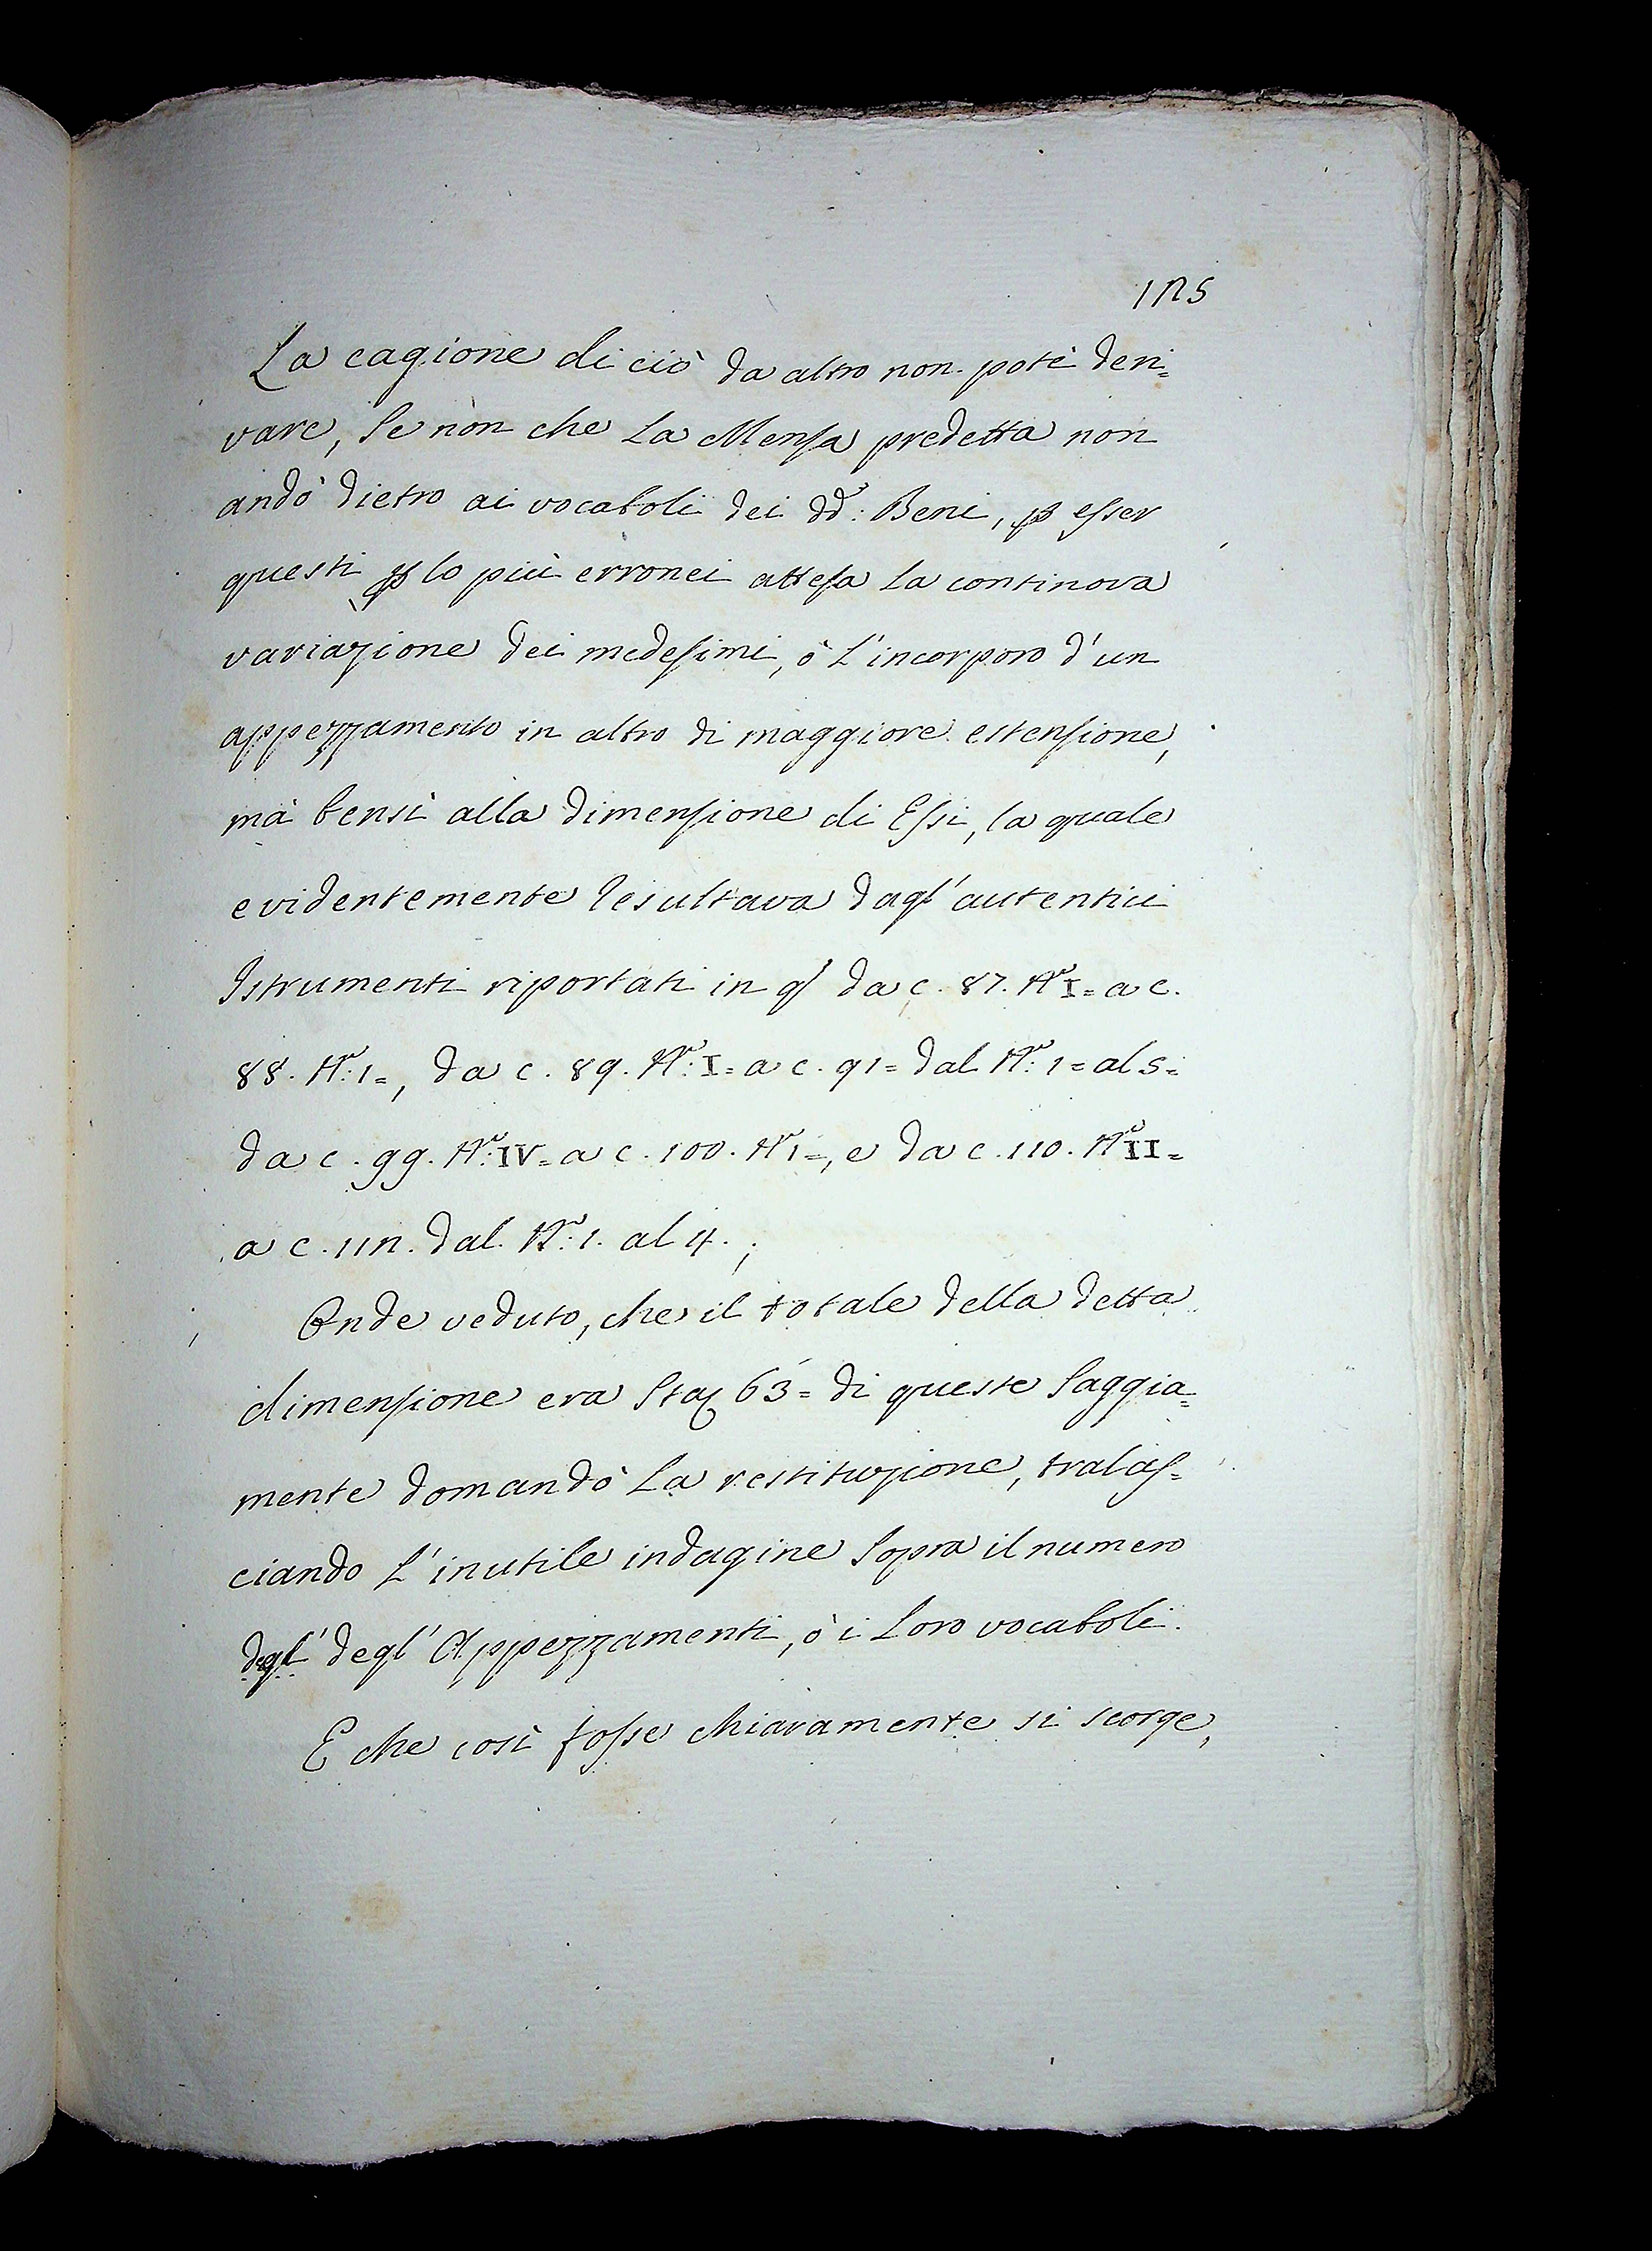 125
La cagione di ciò da altro non potè deri=
vare, se non che la Mensa predetta non
andò dietro ai vocaboli dei dd: Beni, p esser
questi p lo più erronei attesa la continova
variazione dei medesimi, ò l'incorporo d'un
appezzamento in altro di maggiore estensione,
mà bensì alla dimensione di Essi, la quale
evidentemente resultava dagl'autentici
Istrumenti riportati in q da c. 87. N.º I= a c.
88. N.º: 1=, da c. 89. N.º: I= a c. 91= dal N.º: 1= al 5=
da c. 99. N.º: IV= a c. 100. N.º 1=, e da c. 110. N.º II=
a c. 112. dal N.º: 1. al 4.;
Onde veduto, che il totale della detta
dimensione era Sta 63= di queste saggia=
mente domandò la restituzione, tralas=
ciando l'inutile indagine sopra il numero
degl' degl'Appezzamenti, ò i loro vocaboli.
E che così fosse chiaramente si scorge,